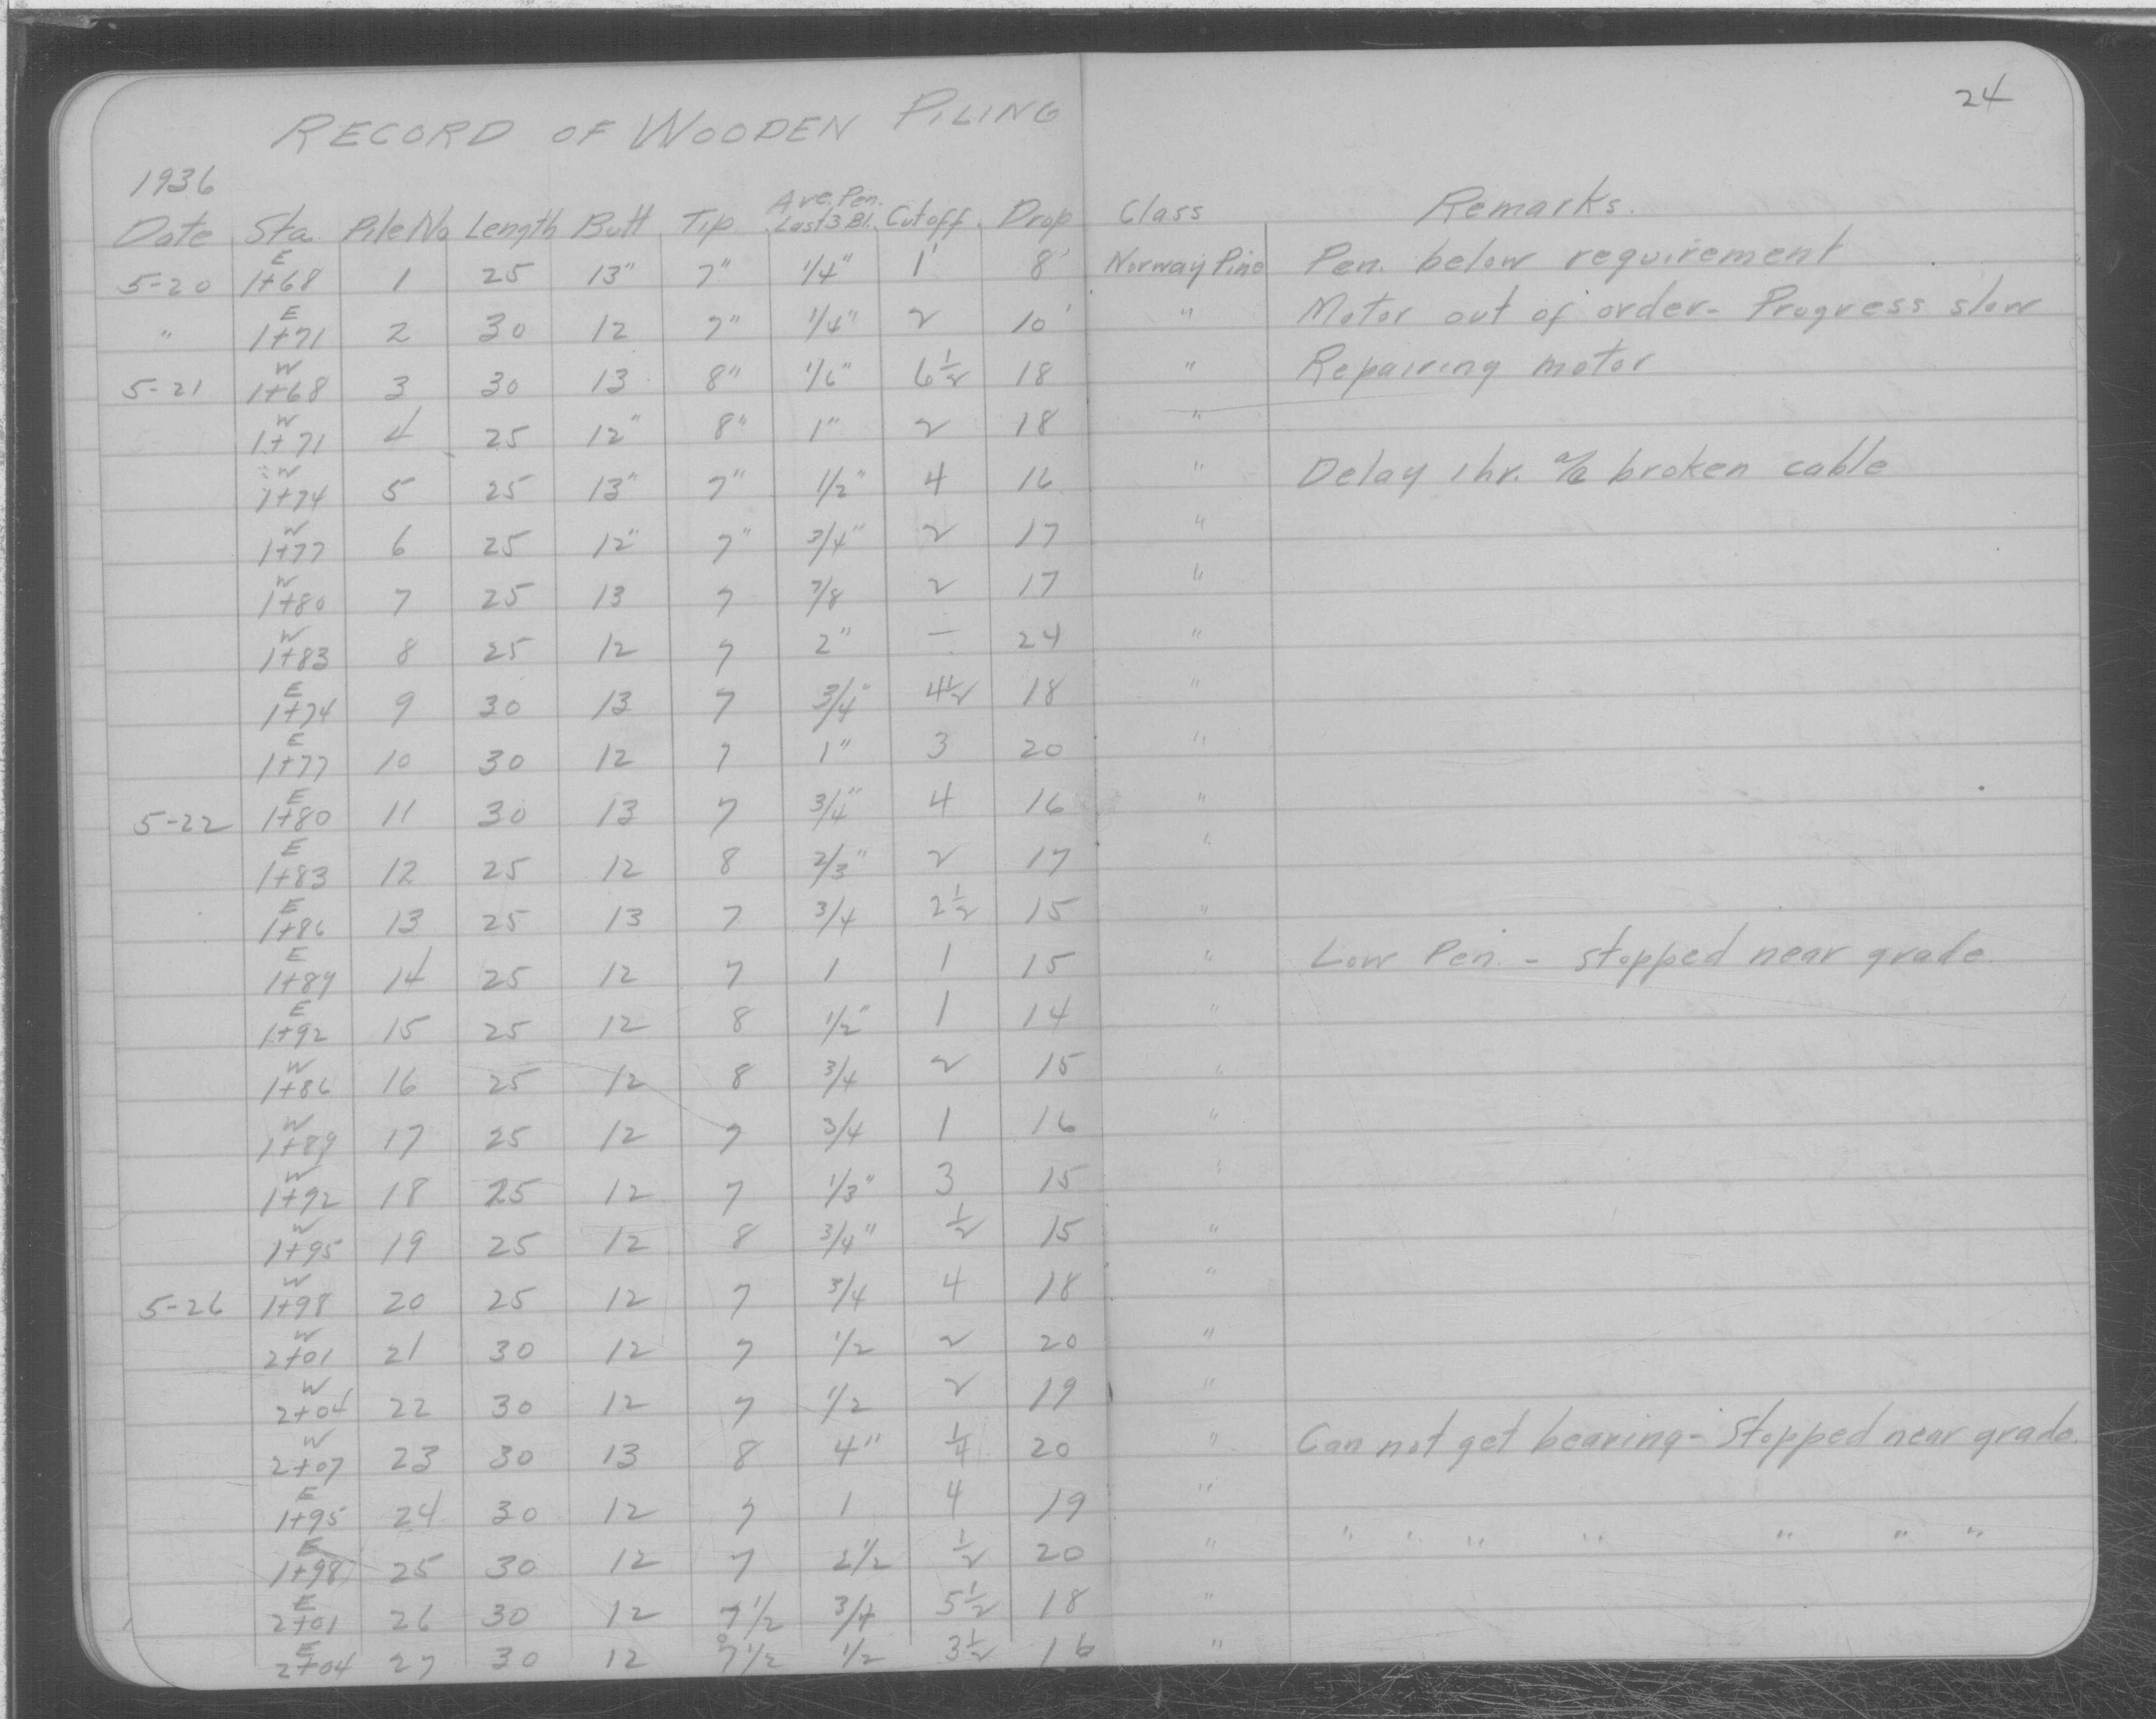 24
RECORD OF WOODEN PILING
1936
Date Sta. Pile No Length Butt Tip Ave. Pen. Last 3 Bl. Cutoff Drop Class Remarks.
5-20 E 1+68 1 25 13" 7" 1/4" 1' 8' Norway Pine Pen. below requirement
" E 1+71 2 30 12 7" 1/4" 2 10' " Motor out of order - Progress slow
5-21 W 1+68 3 30 13 8" 1/6" 6 1/2 18 " Repairing motor
W 1+71 4 25 12" 8" 1" 2 18 "
W 1+74 5 25 13" 7" 1/2" 4 16 " Delay 1 hr. a/c broken cable
W 1+77 6 25 12" 7" 3/4" 2 17 "
W 1+80 7 25 13 7 7/8 2 17 "
W 1+83 8 25 12 7 2" — 24 "
E 1+74 9 30 13 7 3/4" 4 1/2 18 "
E 1+77 10 30 12 7 1" 3 20 "
5-22 E 1+80 11 30 13 7 3/4" 4 16 "
E 1+83 12 25 12 8 2/3" 2 17 "
E 1+86 13 25 13 7 3/4 2 1/2 15 "
E 1+89 14 25 12 7 1 1 15 " Low Pen. - stopped near grade
E 1+92 15 25 12 8 1/2" 1 14 "
W 1+86 16 25 12 8 3/4 2 15 "
W 1+89 17 25 12 7 3/4 1 16 "
W 1+92 18 25 12 7 1/3" 3 15 "
W 1+95 19 25 12 8 3/4" 1/2 15 "
5-26 W 1+98 20 25 12 7 3/4 4 18 "
W 2+01 21 30 12 7 1/2 2 20 "
W 2+04 22 30 12 7 1/2 2 19 "
W 2+07 23 30 13 8 4" 1/4 20 " Can not get bearing - Stopped near grade.
E 1+95 24 30 12 7 1 4 19 "
E 1+98 25 30 12 7 2 1/2 1/2 20 " " " " " " " "
E 2+01 26 30 12 7 1/2 3/4 5 1/2 18 "
E 2+04 27 30 12 7 1/2 1/2 3 1/2 16 "